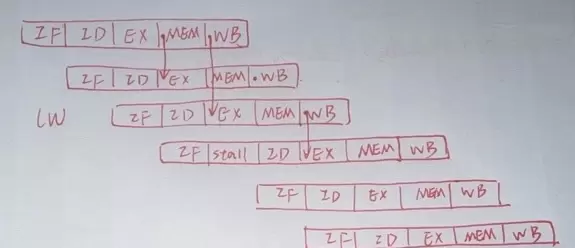 IF ID EX MEM WB
IF ID EX MEM WB
LW IF ID EX MEM WB
IF stall ID EX MEM WB
IF ID EX MEM WB
IF ID EX MEM WB